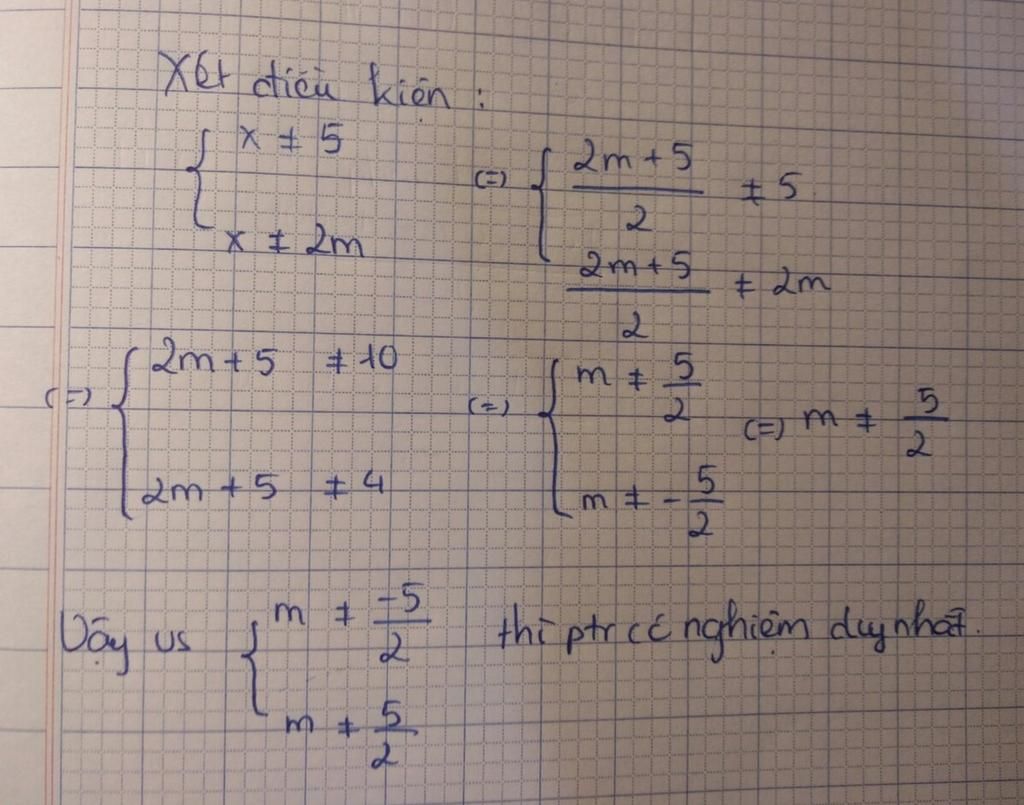 Xét điều kiện :
{ x ≠ 5
x ≠ 2m
(=) { (2m + 5)/2 ≠ 5
(2m + 5)/2 ≠ 2m
(=) { 2m + 5 ≠ 10
2m + 5 ≠ 4
(=) { m ≠ 5/2
m ≠ - 5/2
(=) m ≠ 5/2
Vậy vs { m ≠ -5/2
m ≠ 5/2
thì ptr có nghiệm duy nhất.